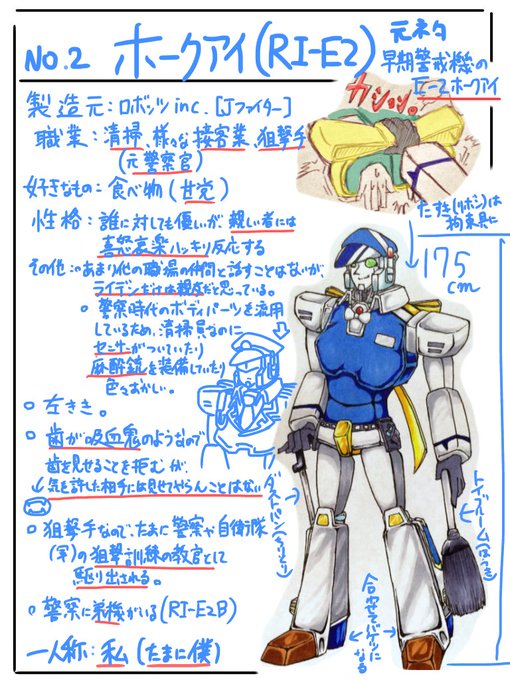 No.2 ホークアイ(RI-E2)
元ネタ
早期警戒機の
E-2ホークアイ
製造元:ロボッツinc.[Jファイター]
職業:清掃、様々な接客業、狙撃手
(元警察官)
好きなもの:食べ物(甘党)
性格:誰に対しても優しいが、親しい者には
喜怒哀楽ハッキリ反応する
その他:○あまり他の職場の仲間と話すことはないが、
ライデンだけは親友だと思っている。
○警察時代のボディパーツを流用
しているため、清掃員なのに
センサーがついていたり
麻酔銃を装備していたり
色々おかしい。
○左きき。
○歯が吸血鬼のようなので
歯を見せることを拒むが、
気を許した相手には見せてやらんことはない
○狙撃手なので、たまに警察や自衛隊
の狙撃訓練の教官として
駆り出される。
○警察に弟機がいる(RI-E2B)
一人称:私(たまに僕)
ガシッ。
たすき(リボン)は
拘束具に
175
cm
ダストパン(ちりとり)
トイブルーム(ほうき)
合わせてバケツに
なる